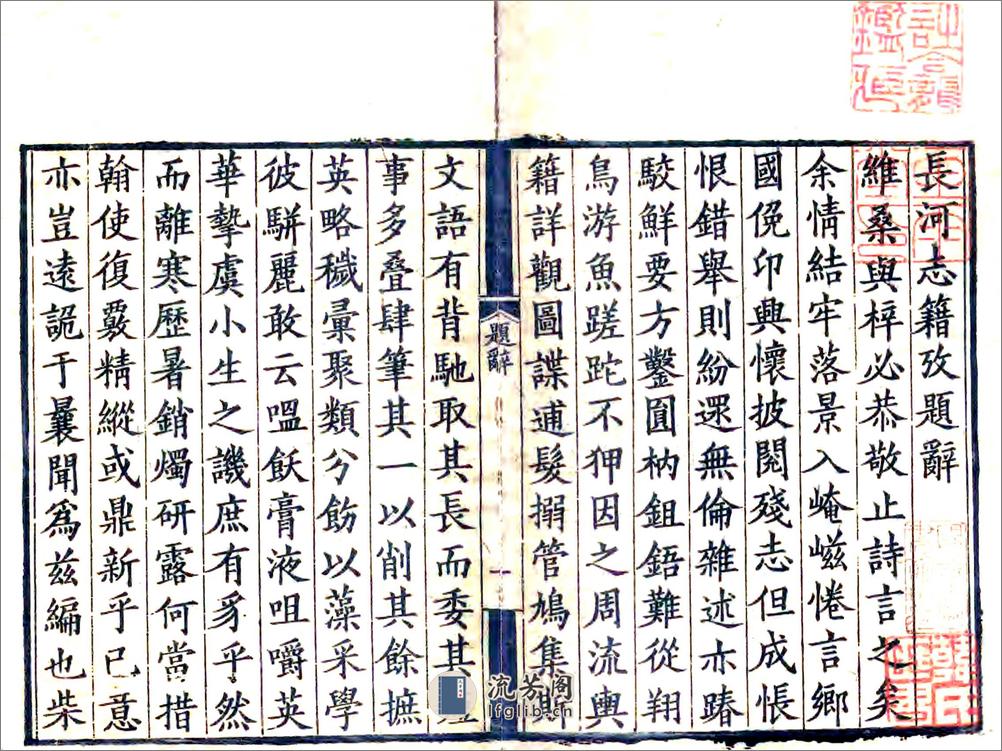 長河志籍攷題辭
維桑與梓必恭敬止詩言之矣
余情結牢落景入崦嵫惓言鄉
國俛印興懷披閱殘志但成悵
恨錯舉則紛還無倫雜述亦踳
駮鮮要方鑿圓枘鉏鋙難從翔
鳥游魚蹉跎不狎因之周流輿
籍詳觀圖諜逋髮搦管鳩集
題辭
一
文語有背馳取其長而委其
事多疊肆筆其一以削其餘摭
英略穢彙聚類分飭以藻采學
彼駢麗敢云嗢飫膏液咀嚼英
華摯虞小生之譏庶有豸乎然
而離寒歷暑銷燭研露何當措
翰使復覈精縱或鼎新乎已意
亦豈遠詭于曩聞為茲編也柴
流芳阁
lfglib.cn